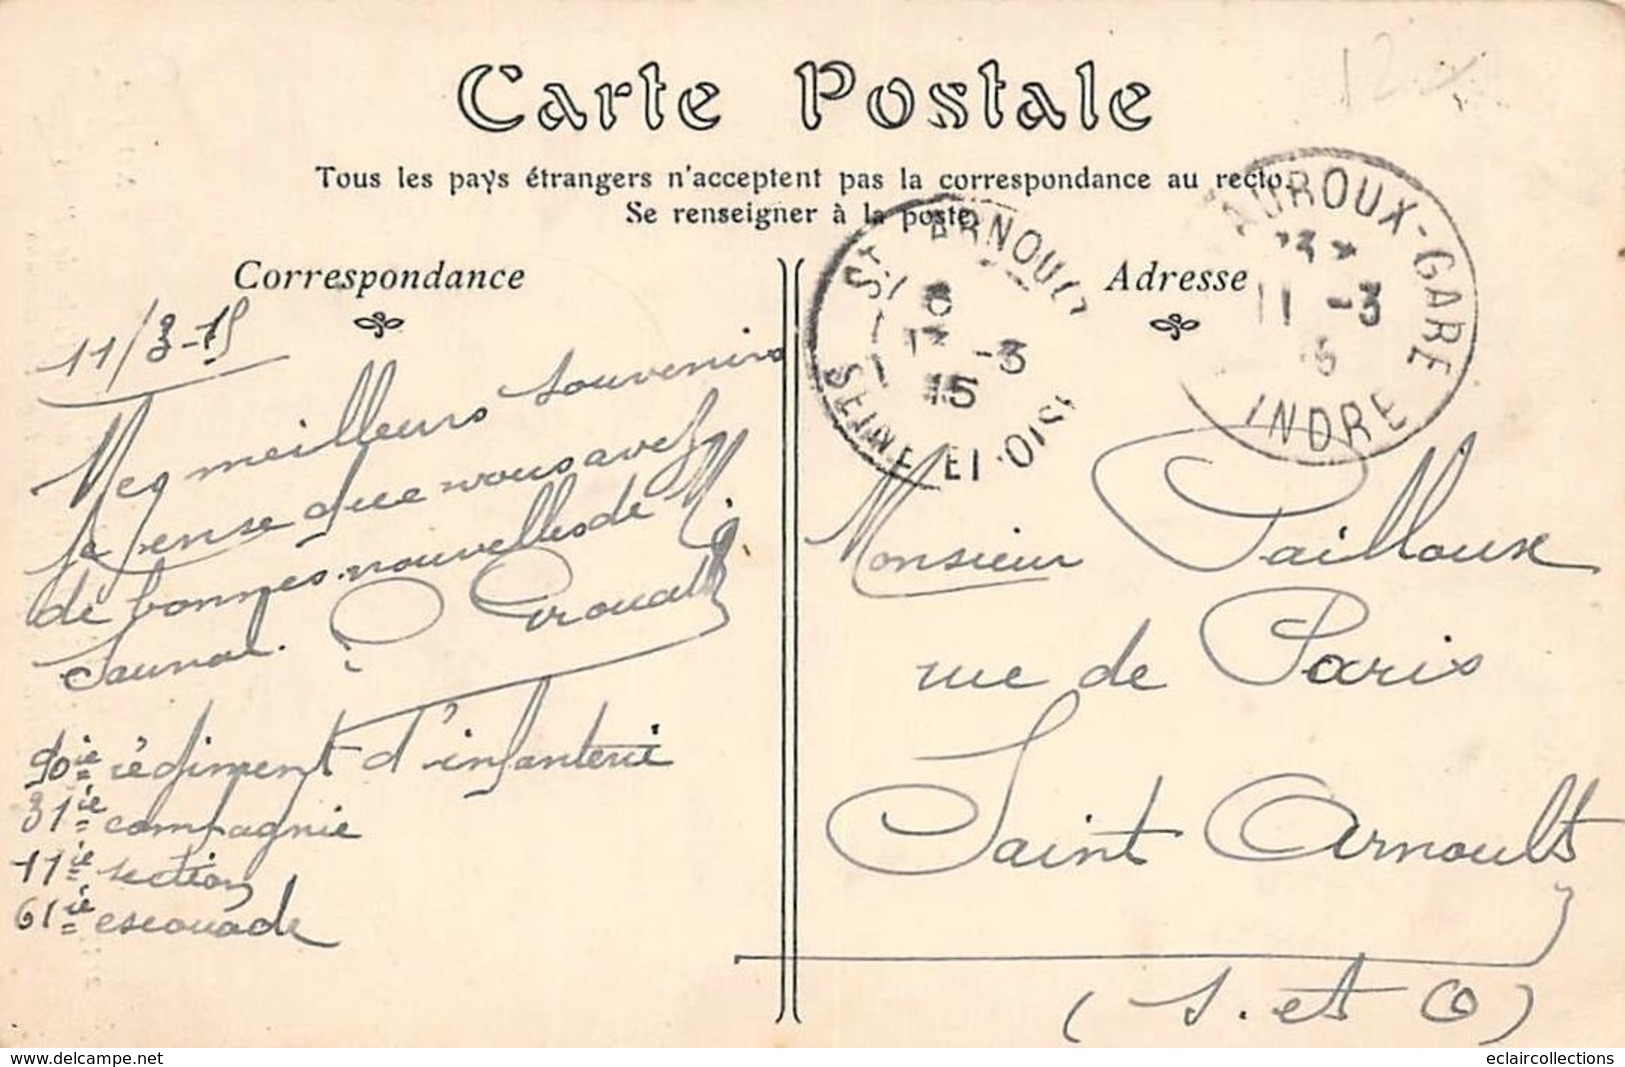 Carte Postale
Tous les pays étrangers n'acceptent pas la correspondance au recto.
Se renseigner à la poste.
Correspondance
11/3-15
Mes meilleurs souvenirs
Je pense que vous avez
de bonnes nouvelles de M.
90ie régiment d'infanterie
31ie compagnie
11ie section
61ie escouade
Adresse
Monsieur Pailloux
rue de Paris
Saint Arnoult
(S. et O)
ST ARNOULT
13 -3
15
SEINE ET OISE
AUROUX-GARE
11 -3
INDRE
www.delcampe.net
eclaircollections